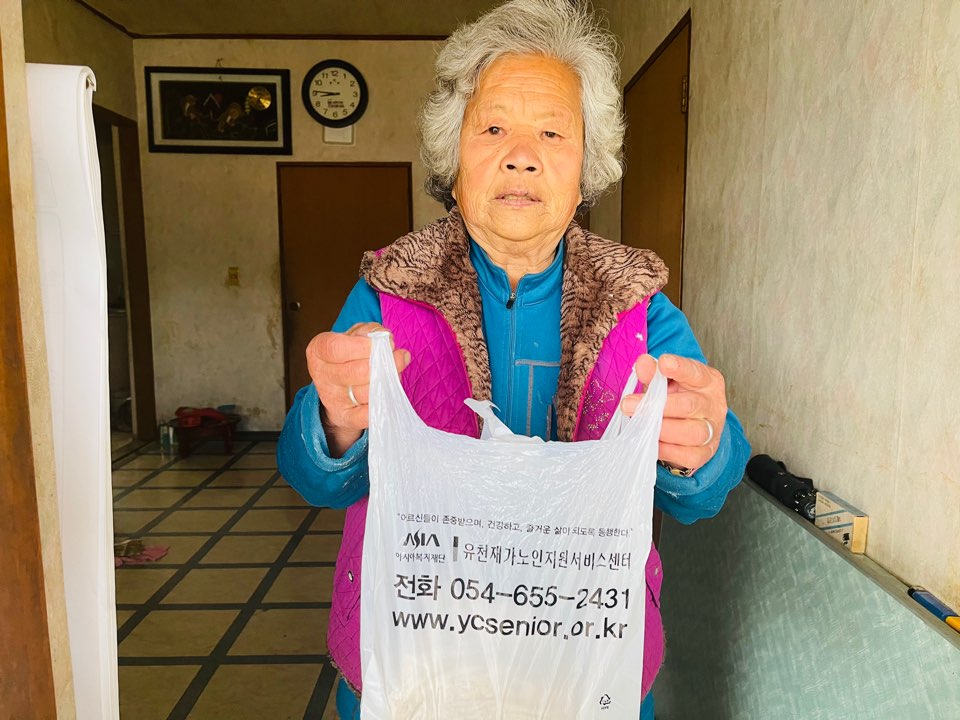 "어르신들이 존중받으며, 건강하고, 즐거운 삶이 되도록 동행한다."
ASIA 아시아복지재단 | 유천재가노인지원서비스센터
전화 054-655-2431
www.ycsenior.or.kr